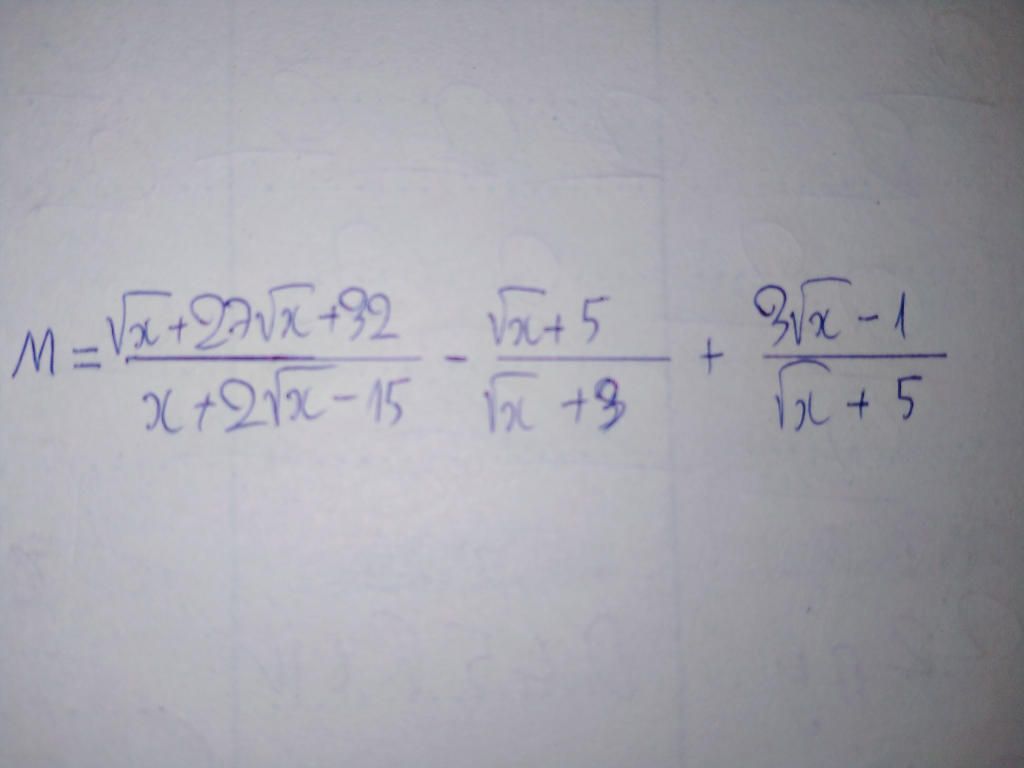 M = \frac{\sqrt{x}+27\sqrt{x}+32}{x+2\sqrt{x}-15} - \frac{\sqrt{x}+5}{\sqrt{x}+3} + \frac{3\sqrt{x}-1}{\sqrt{x}+5}